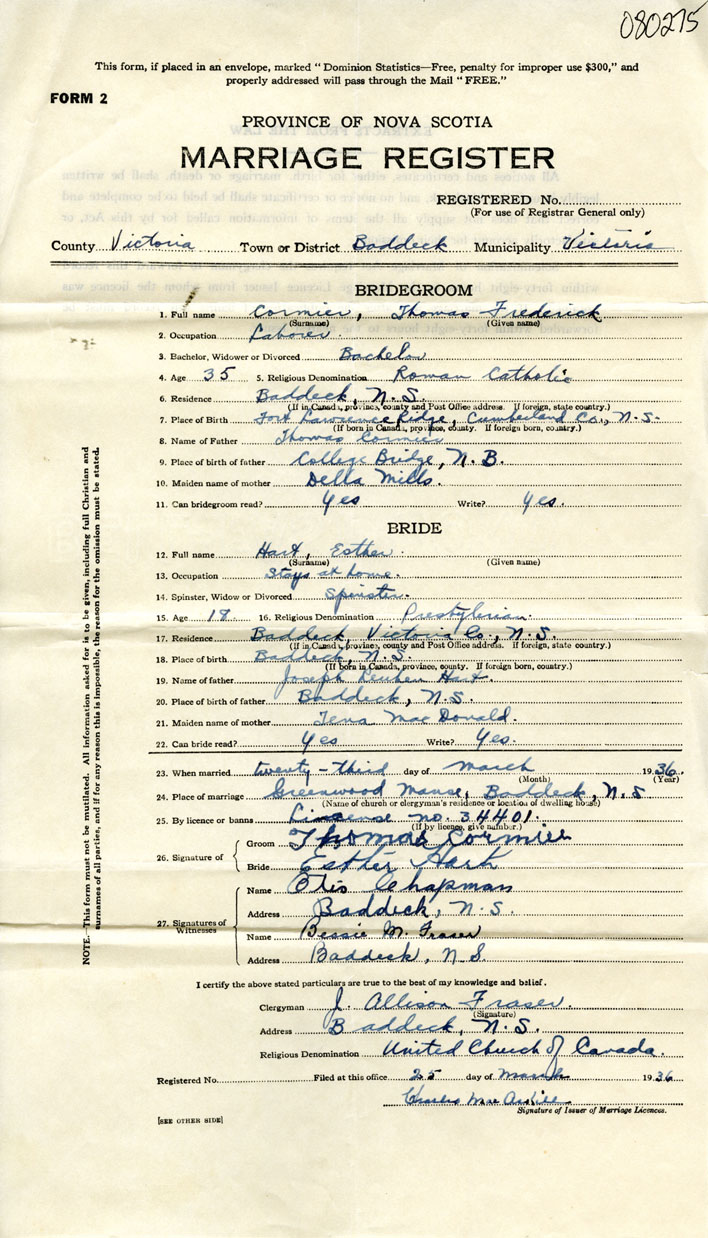 080275
This form, if placed in an envelope, marked "Dominion Statistics—Free, penalty for improper use $300," and
properly addressed will pass through the Mail "FREE."
FORM 2
PROVINCE OF NOVA SCOTIA
MARRIAGE REGISTER
REGISTERED No.
(For use of Registrar General only)
County Victoria Town or District Baddeck Municipality Victoria
BRIDEGROOM
1. Full name Cormier, Thomas Frederick
(Surname) (Given name)
2. Occupation Laborer
3. Bachelor, Widower or Divorced Bachelor
4. Age 35 5. Religious Denomination Roman Catholic
6. Residence Baddeck, N.S.
(If in Canada, province, county and Post Office address. If foreign, state country.)
7. Place of Birth Fort Lawrence Ridge, Cumberland Co., N.S.
(If born in Canada, province, county. If foreign born, country.)
8. Name of Father Thomas Cormier
9. Place of birth of father College Bridge, N.B.
10. Maiden name of mother Della Mills.
11. Can bridegroom read? Yes Write? Yes.
BRIDE
12. Full name Hart, Esther
(Surname) (Given name)
13. Occupation Stays at home.
14. Spinster, Widow or Divorced Spinster.
15. Age 18 16. Religious Denomination Presbyterian
17. Residence Baddeck, Victoria Co., N.S.
(If in Canada, province, county and Post Office address. If foreign, state country.)
18. Place of birth Baddeck, N.S.
(If born in Canada, province, county. If foreign born, country.)
19. Name of father Joseph Reuben Hart.
20. Place of birth of father Baddeck, N.S.
21. Maiden name of mother Tena MacDonald.
22. Can bride read? Yes Write? Yes.
23. When married twenty-third day of March 1936.
(Month) (Year)
24. Place of marriage Greenwood Manse, Baddeck, N.S
(Name of church or clergyman's residence or location of dwelling house)
25. By licence or banns Linsense no. 34401.
(If by licence, give number.)
26. Signature of Groom Thomas Cormier
Bride Esther Hart
27. Signatures of Witnesses Name Otis Chapman
Address Baddeck, N.S.
Name Bessie M. Fraser
Address Baddeck, N.S
I certify the above stated particulars are true to the best of my knowledge and belief.
Clergyman J. Allison Fraser.
(Signature)
Address Baddeck, N.S.
Religious Denomination United Church of Canada.
Registered No. Filed at this office 25 day of March 1936
Charles MacAskill
Signature of Issuer of Marriage Licences.
[SEE OTHER SIDE]
NOTE.—This form must not be mutilated. All information asked for is to be given, including full Christian and
surnames of all parties, and if for any reason this is impossible, the reason for the omission must be stated.